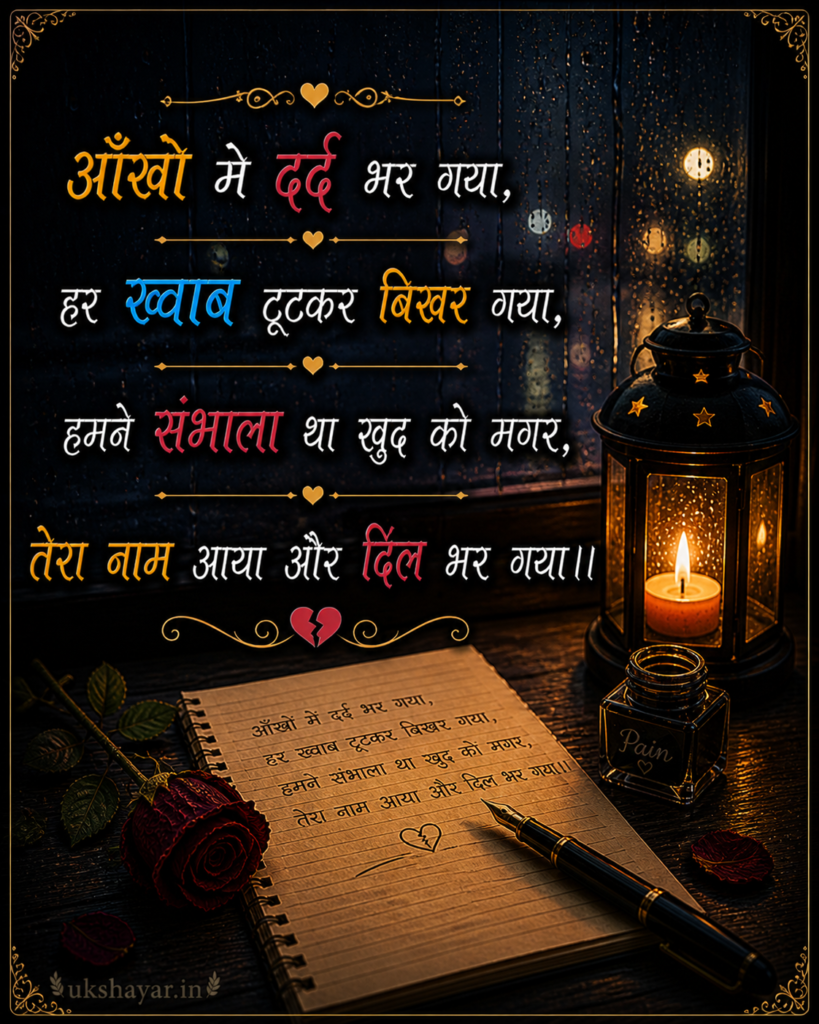 आँखो मे दर्द भर गया,
हर ख्वाब टूटकर बिखर गया,
हमने संभाला था खुद को मगर,
तेरा नाम आया और दिल भर गया।।
आँखों में दर्द भर गया,
हर ख्वाब टूटकर बिखर गया,
हमने संभाला था खुद को मगर,
तेरा नाम आया और दिल भर गया।।
Pain
ukshayar.in